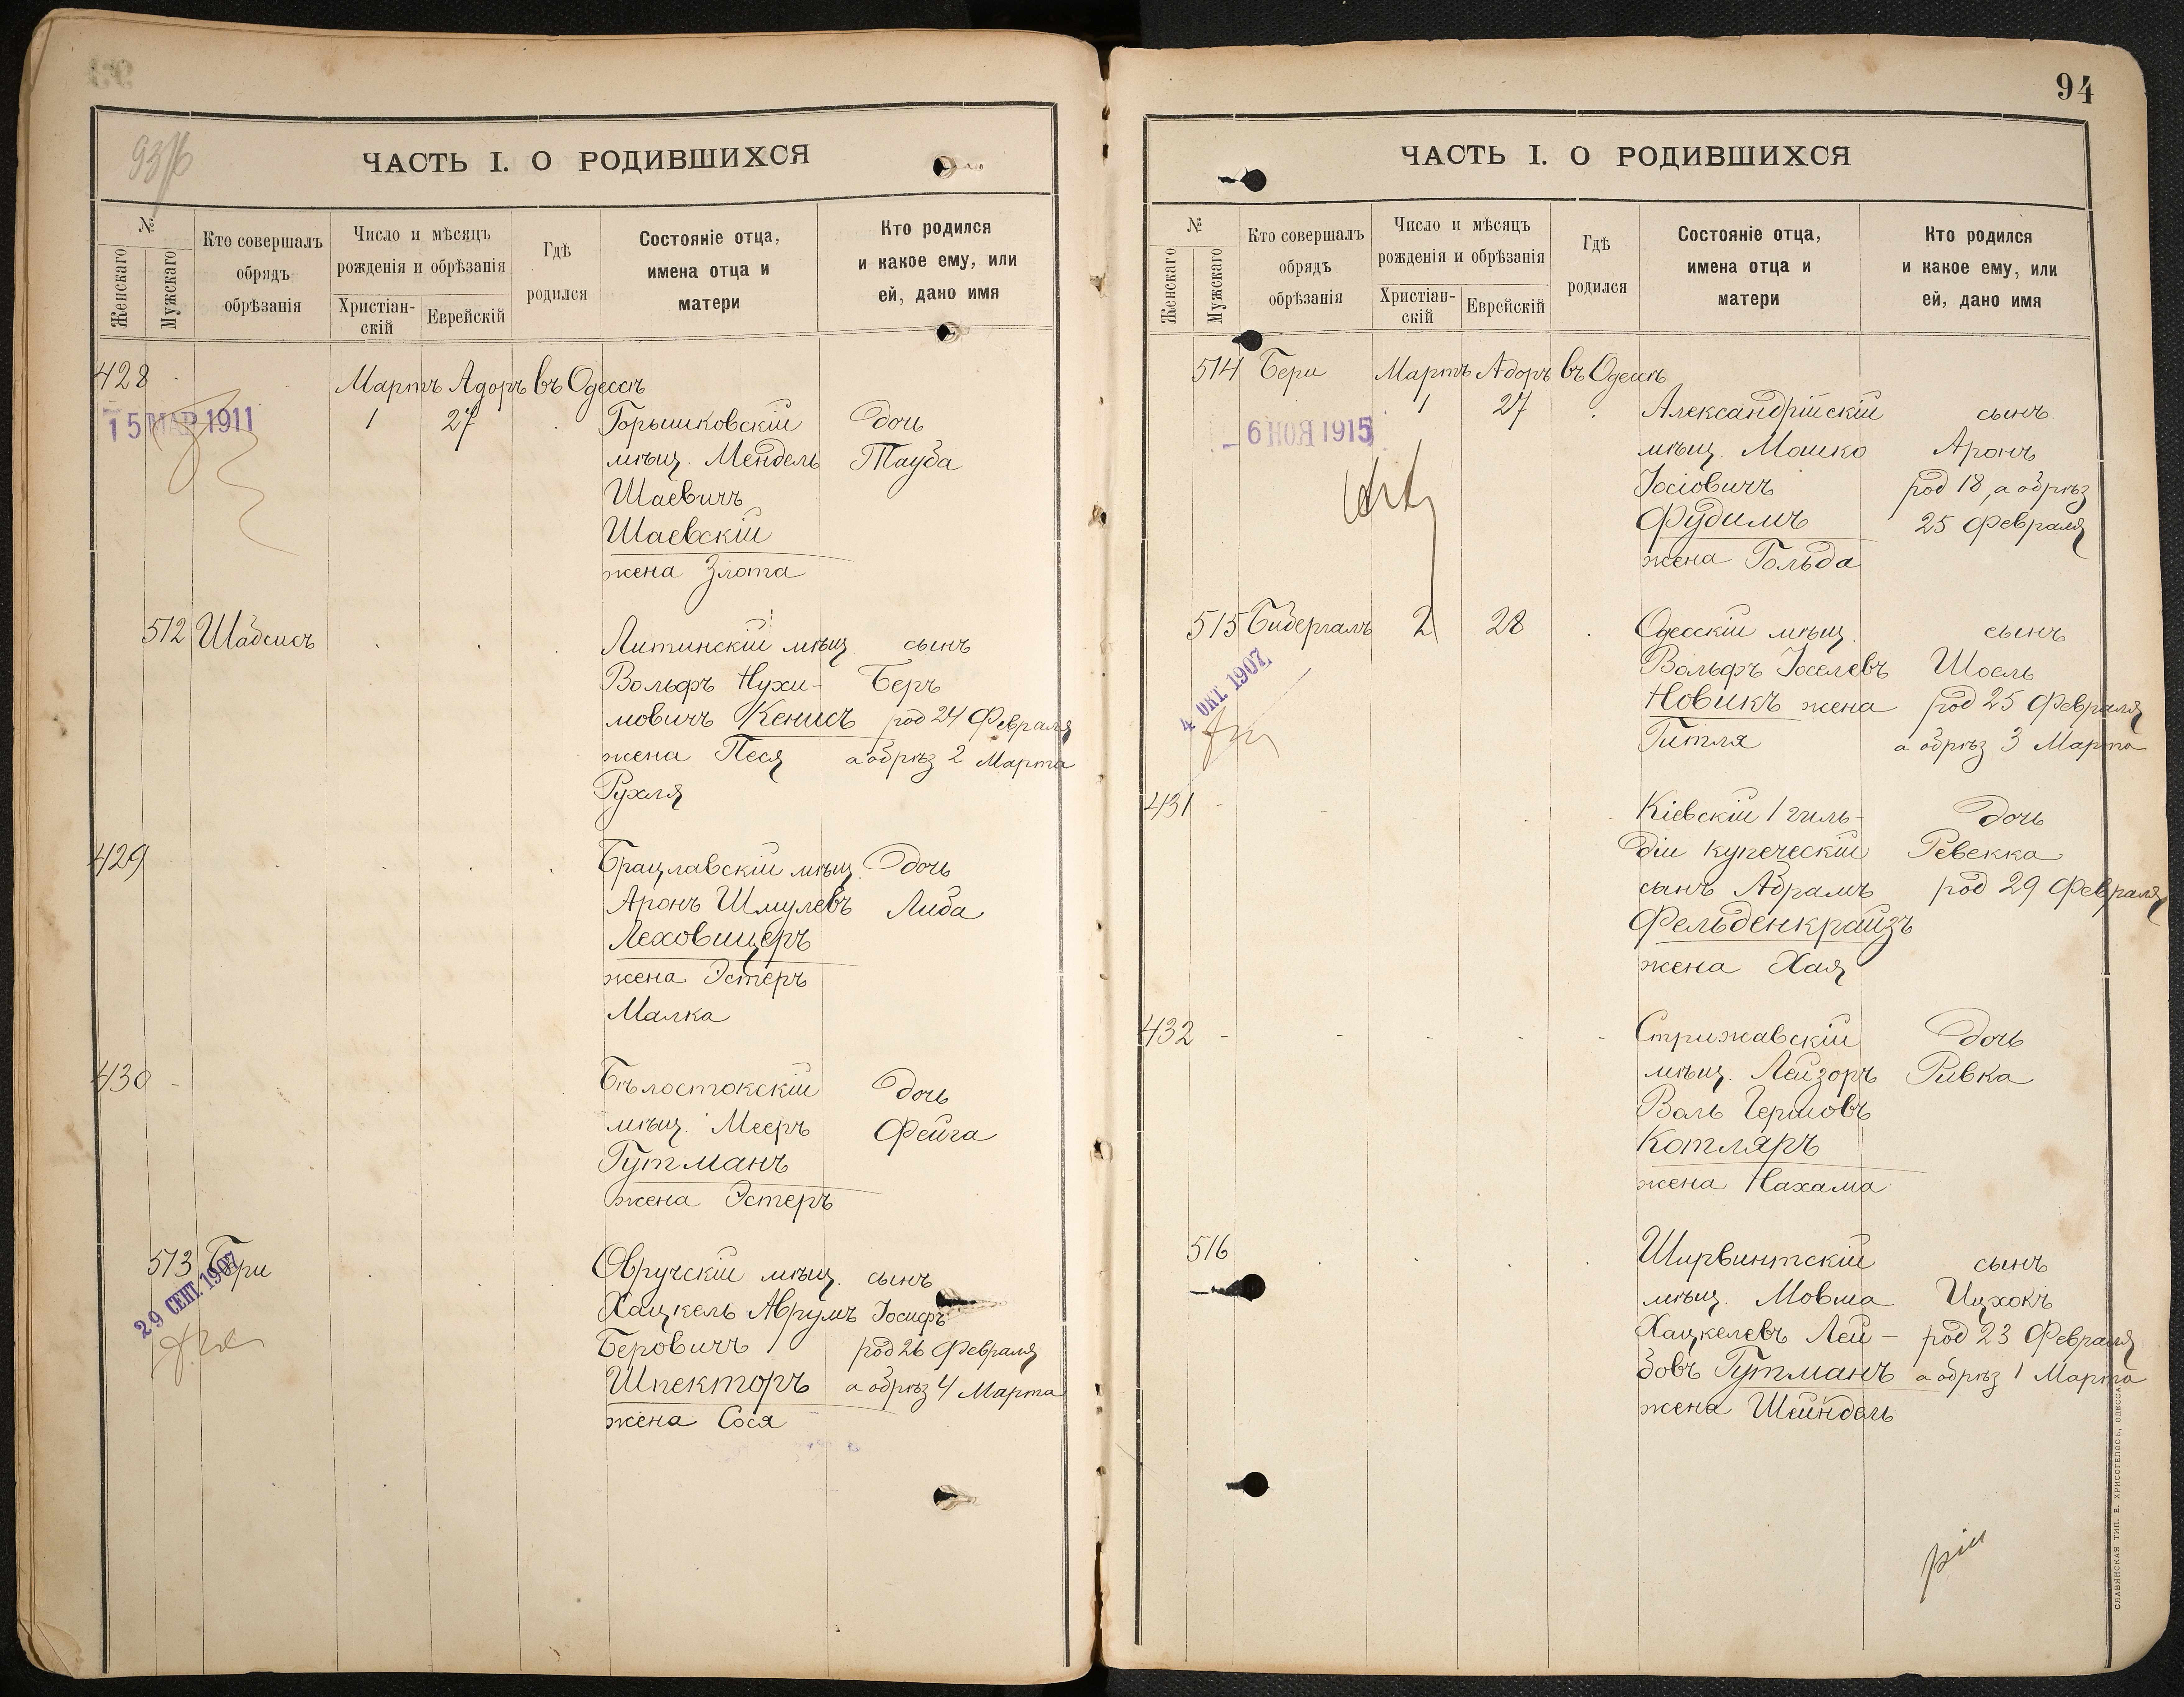 93
ЧАСТЬ I. О РОДИВШИХСЯ
№
Женскаго
Мужскаго
Кто совершалъ
обрядъ
обрѣзанія
Число и мѣсяцъ
рожденія и обрѣзанія
Христіан-
скій
Еврейскій
Гдѣ
родился
Состояніе отца,
имена отца и
матери
Кто родился
и какое ему, или
ей, дано имя
428
Мартъ Адоръ въ Одессѣ
15 МАР 1911
1 27 Горышковскій дочь
мѣщ. Мендель Тауба
Шаевичъ
Шаевскій
жена Злота
512 Шабсисъ Литинскій мѣщ. сынъ
Вольфъ Нухи- Беръ
мовичъ Кенисъ род 24 Февраля
жена Песя а обрѣз 2 Марта
Рухля
429 Брацлавскій мѣщ. дочь
Аронъ Шмулевъ Либа
Леховицеръ
жена Эстеръ
Малка
430 Бѣлостокскій дочь
мѣщ. Мееръ Фейга
Гутманъ
жена Эстеръ
513 Бери Овручскій мѣщ. сынъ
29 СЕНТ. 1907
Хацкель Аврумъ Іосифъ
Беровичъ род 26 Февраля
Шпекторъ а обрѣз 4 Марта
жена Сося
94
ЧАСТЬ I. О РОДИВШИХСЯ
№
Женскаго
Мужскаго
Кто совершалъ
обрядъ
обрѣзанія
Число и мѣсяцъ
рожденія и обрѣзанія
Христіан-
скій
Еврейскій
Гдѣ
родился
Состояніе отца,
имена отца и
матери
Кто родился
и какое ему, или
ей, дано имя
514 Бери Мартъ Адоръ въ Одессѣ
1 27 Александрійскій сынъ
6 НОЯ 1915
мѣщ. Мошко Аронъ
Іосіовичъ род 18, а обрѣз
Фудимъ 25 Февраля
жена Гольда
515 Бидергалъ 2 28 Одесскій мѣщ. сынъ
4 ОКТ. 1907
Вольфъ Іоселевъ Шоель
Новикъ жена род 25 Февраля
Гитля а обрѣз 3 Марта
431 Кіевскій 1 гиль- дочь
діи купеческій Ревекка
сынъ Абрамъ род 29 Февраля
Фельденкрайзъ
жена Хая
432 Стрижавскій дочь
мѣщ. Лейзоръ Ривка
Воль Гершовъ
Котляръ
жена Нахама
516 Ширвинтскій сынъ
мѣщ. Мовша Ицхокъ
Хацкелевъ Лей- род 23 Февраля
бовъ Гутманъ а обрѣз 1 Марта
жена Шейндель
СЛАВЯНСКАЯ ТИП. Е. ХРИСОГЕЛОСЪ, ОДЕССА.